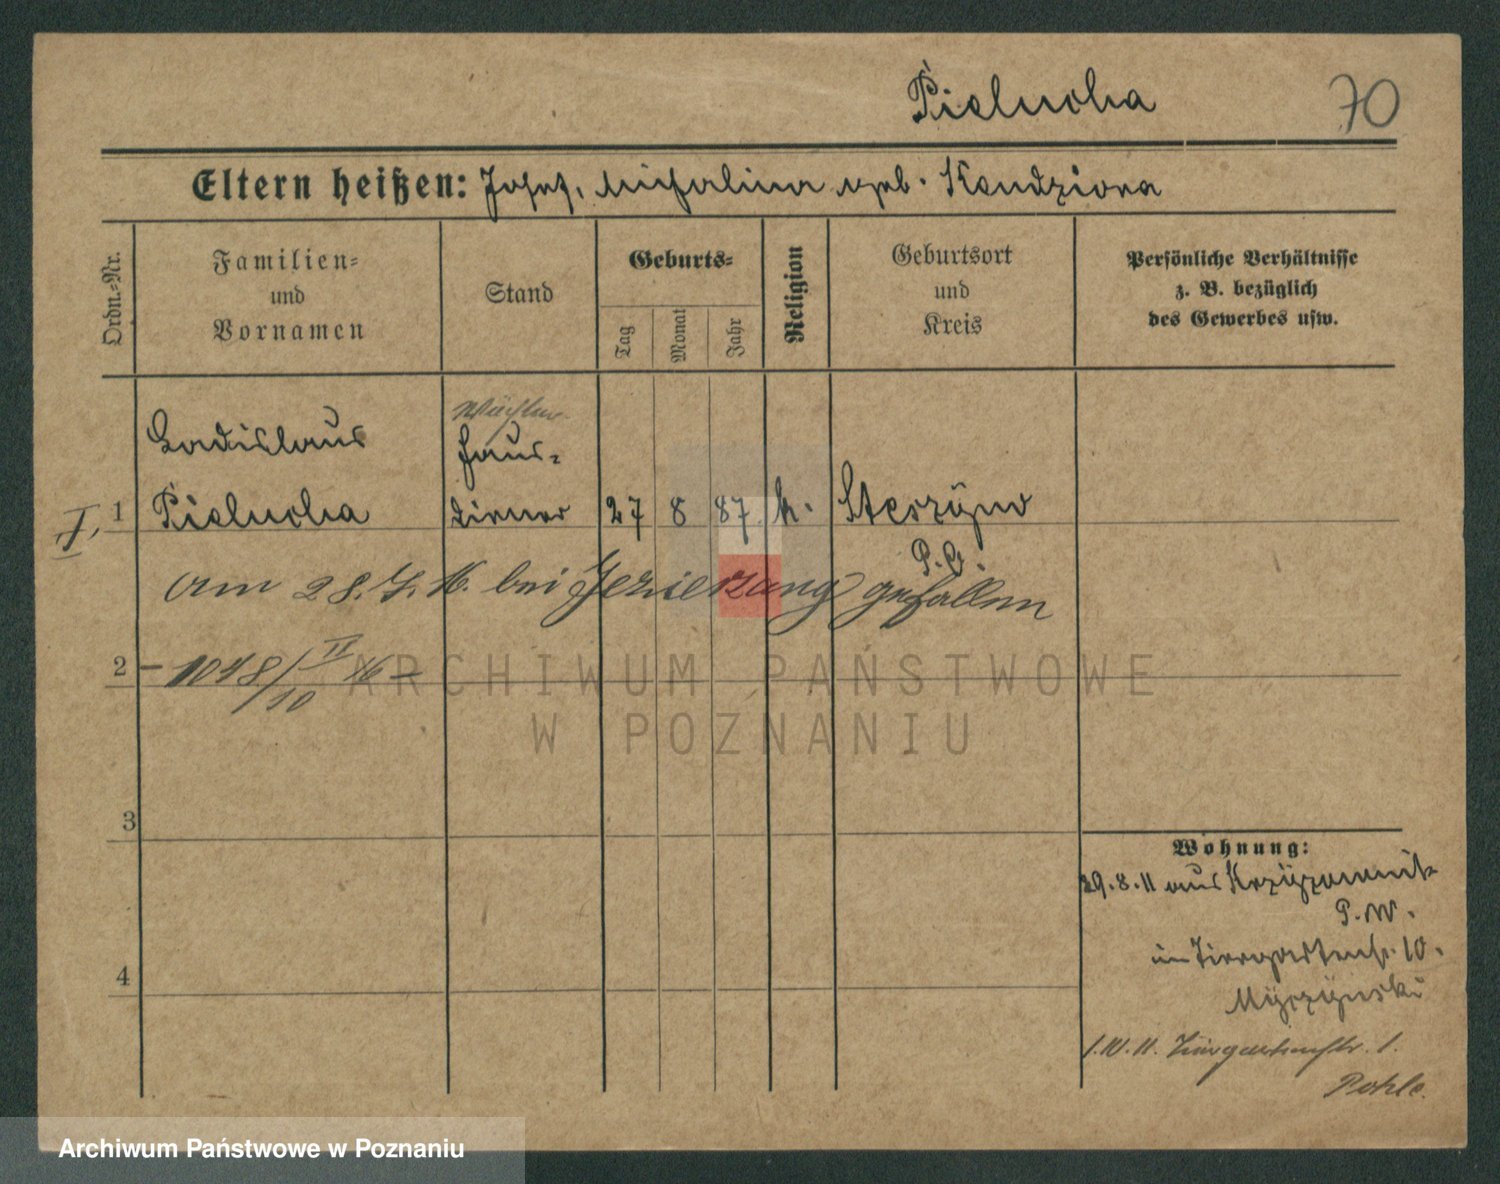 Pielucha 70
Eltern heißen: Josef, Michalina geb. Kendziora
Ordn.-Nr.
Familien-
und
Vornamen
Stand
Geburts-
Tag
Monat
Jahr
Religion
Geburtsort
und
Kreis
Persönliche Verhältnisse
z. B. bezüglich
des Gewerbes usw.
Wächter
Ladislaus Haus-
I. 1 Pielucha diener 27 8 87 k.
P. O.
am 28. 7. 16. bei gefallen
2 - 1048/10 II 16 -
3
4
Wohnung:
29.8.11 aus
P. W.
in Tiergartenstr. 10.
1.10.11. Tiergartenstr. 1.
Pohle.
ARCHIWUM PAŃSTWOWE
W POZNANIU
Archiwum Państwowe w Poznaniu